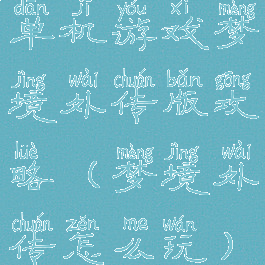 dān jī yóu xì mèng
单机游戏梦
jìng wài chuán bǎn gōng
境外传版攻
lüè mèng jìng wài
略（梦境外
chuán zěn me wán
传怎么玩）